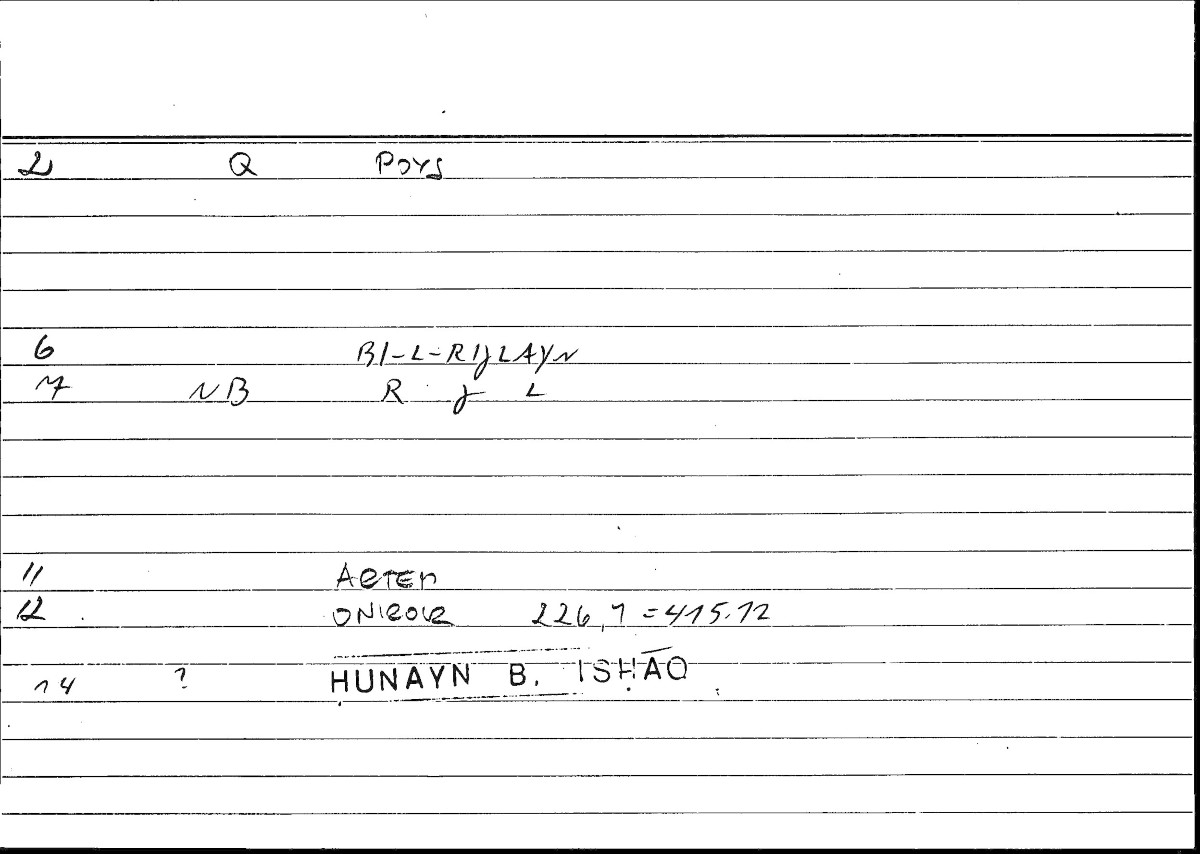 2 Q POYS
6 BI-L-RIJLAYN
7 NB R J L
11 ARTEM
12 ONIROCR 226,1 = 415.12
14 ? ḤUNAYN B. ISḤĀQ